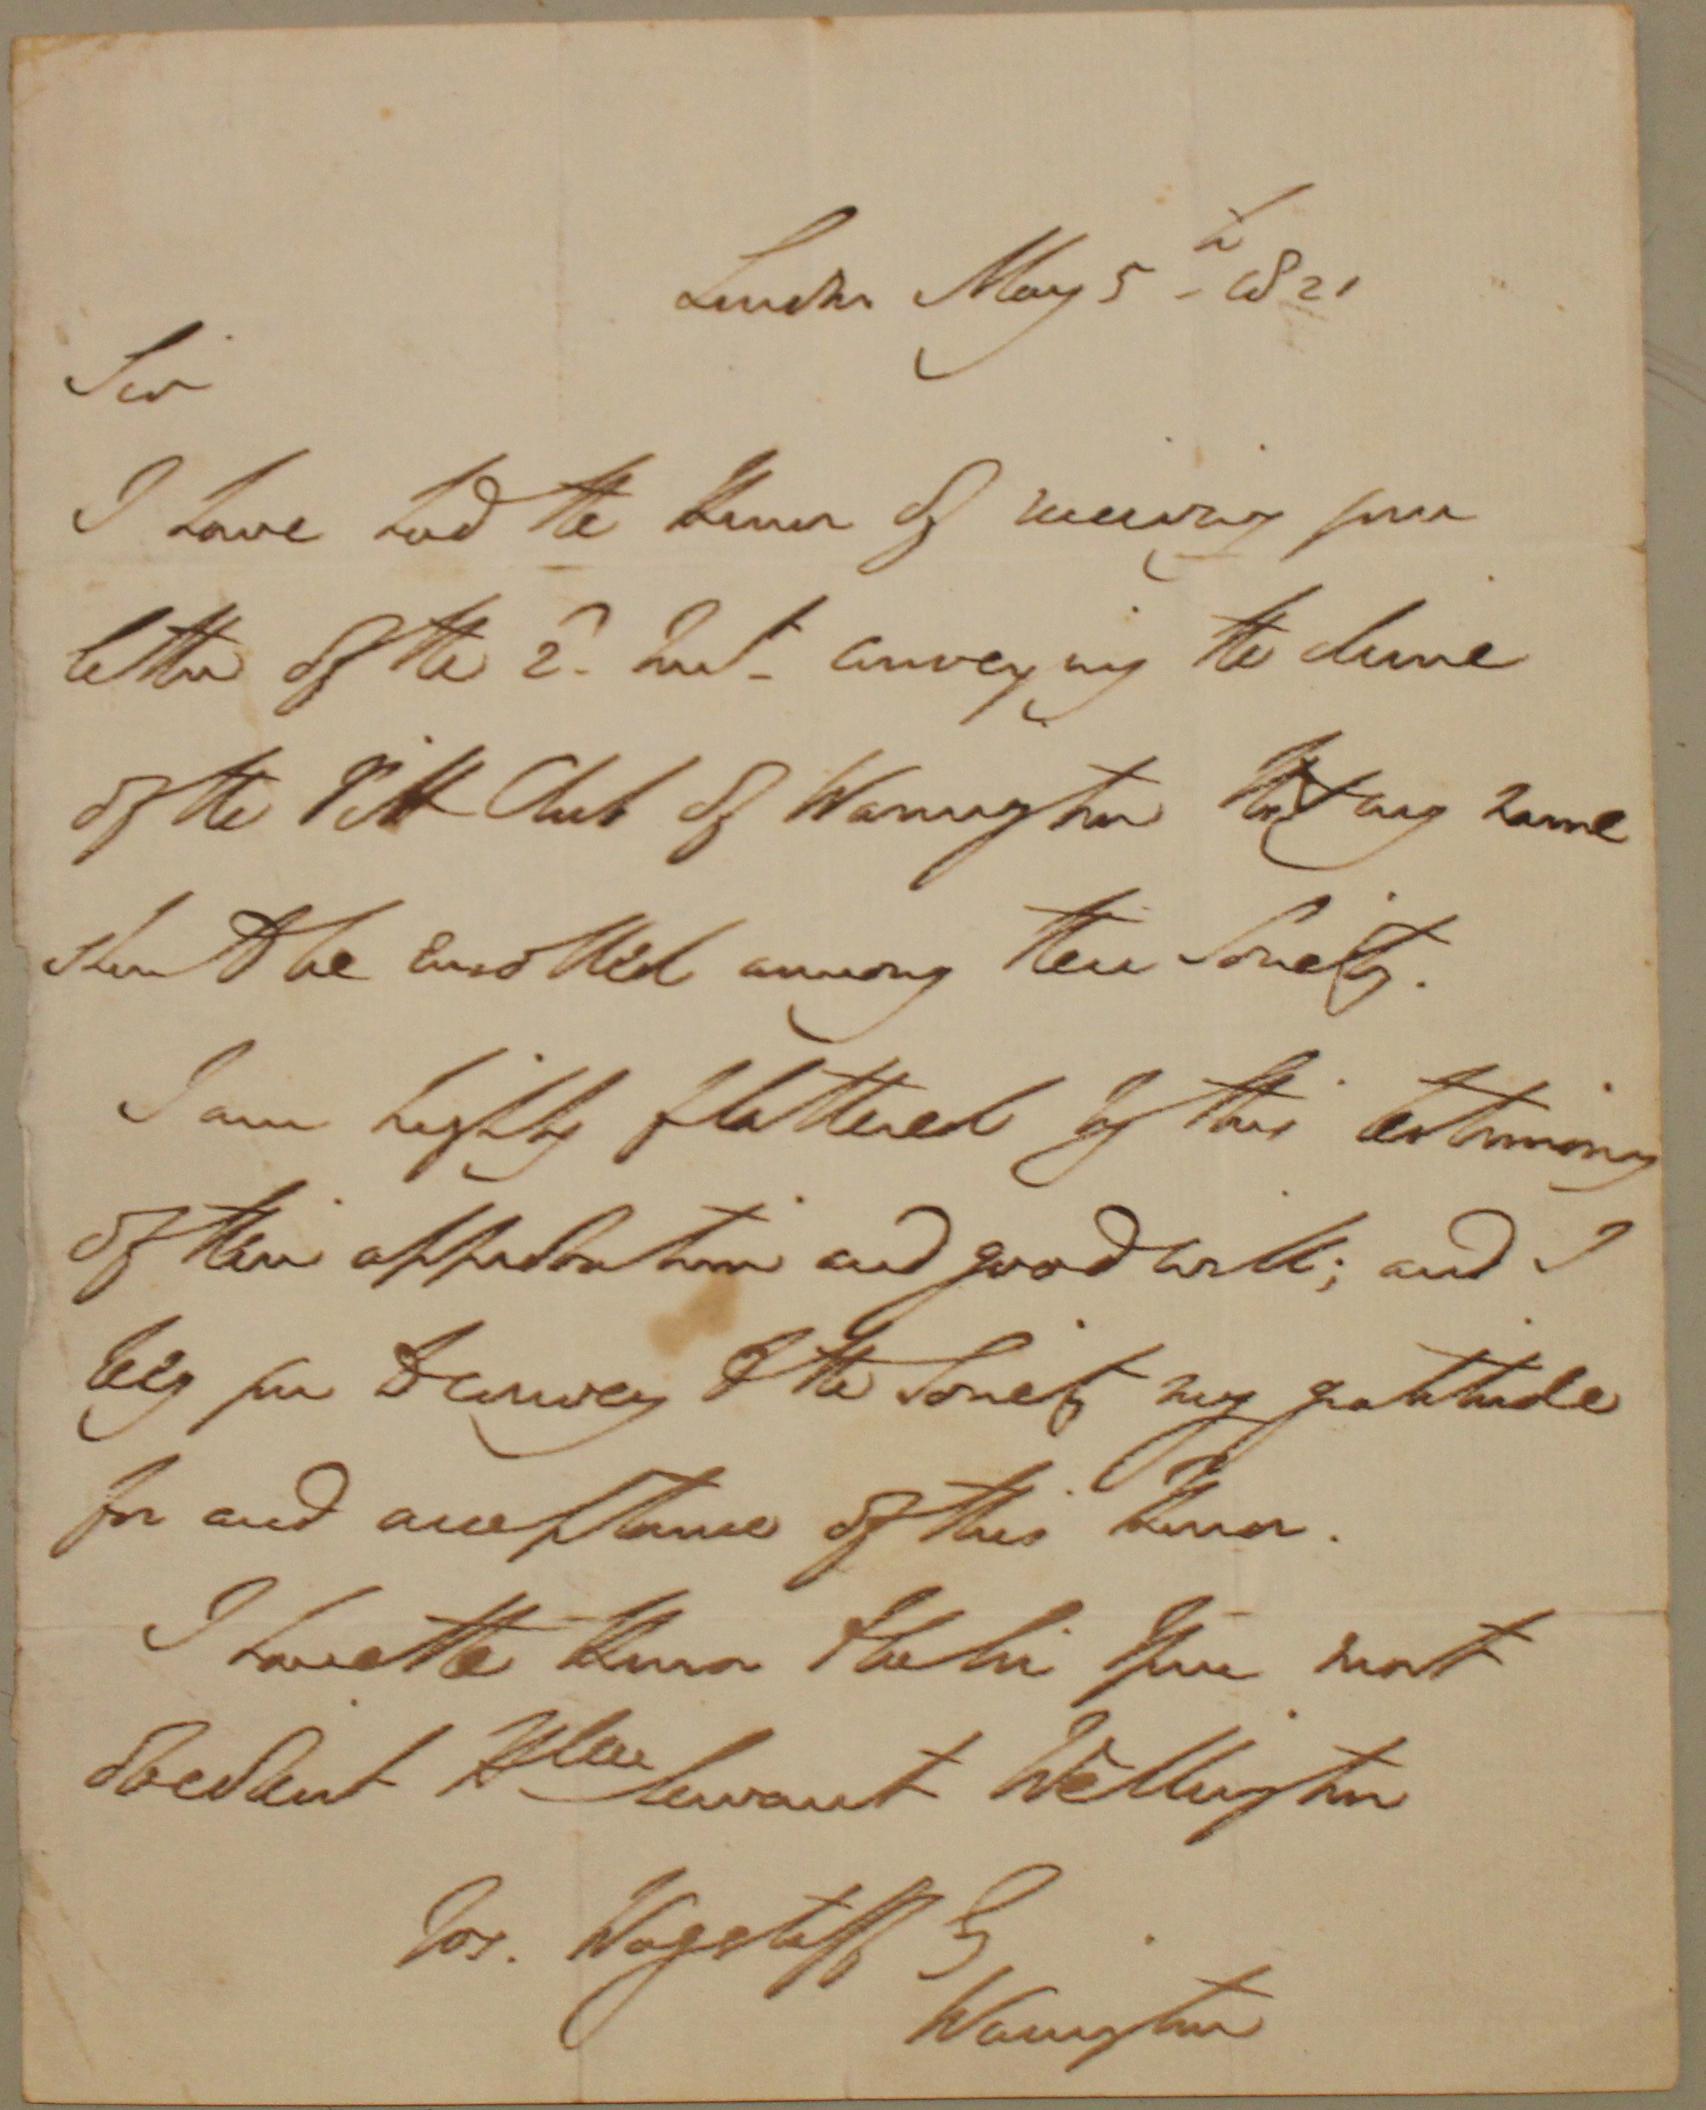 London May 5th 1821
Sir
I have had the Honor of receiving your
letter of the 2d Inst. conveying the desire
of the Pitt Club of Warrington that my name
should be enrolled among their Society.
I am highly flattered by this testimony
of their approbation and good will; and I
beg you to convey to the Society my gratitude
for and acceptance of this Honor.
I have the Honor to be Sir Your most
obedient Hble Servant Wellington
Jos. Wagstaff Esq
Warrington